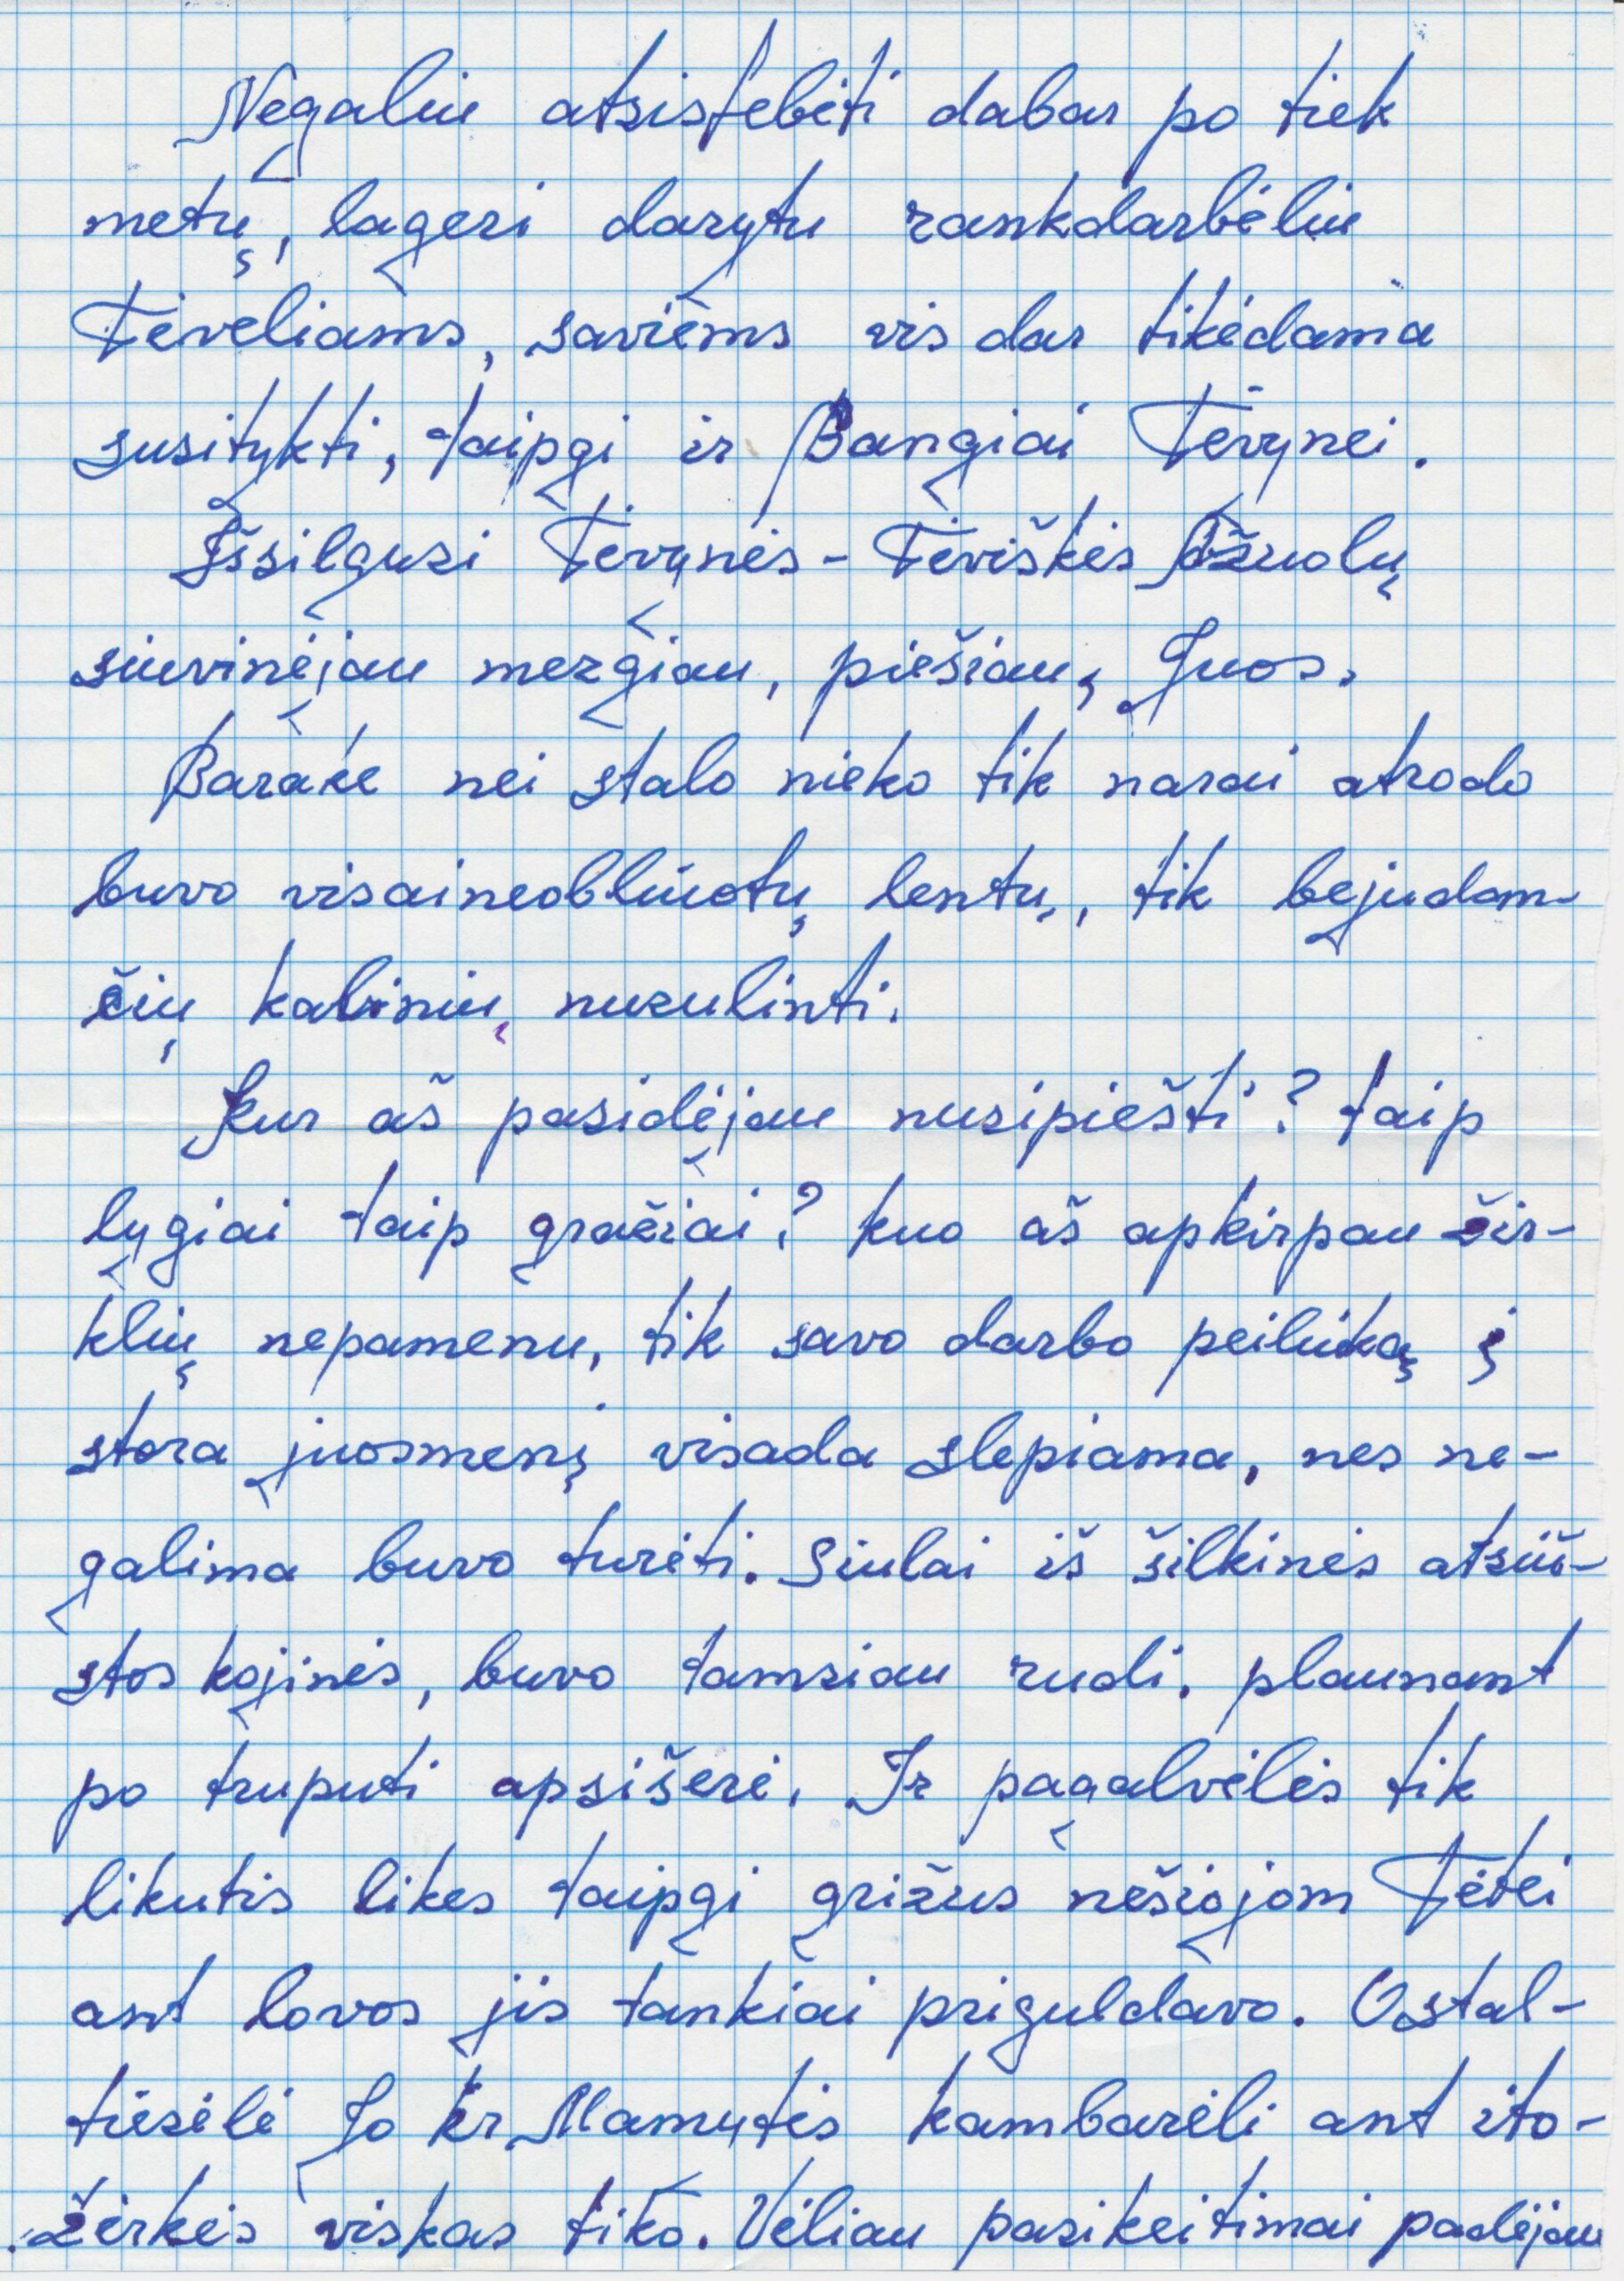 Negaliu atsistebėti dabar po tiek
metų, lageri darytu rankdarbėliu
Tėveliams, saviems vis dar tikėdama
susitykti, taipgi ir Bangiai Tėvynei.
Išsilgusi Tėvynės - Tėviškės Ąžuolų
siuvinėjau mezgiau, piešiau, Juos.
Barake nei stalo nieko tik narai atrodo
buvo visaineobliuotų lentų, tik bejudam-
čių kalinių nuzulinti.
Kur aš pasidėjau nusipiešti? taip
lygiai taip gražiai? kuo aš apkirpau žir-
klių nepamenu, tik savo darbo peiliuką į
stora juosmenį visada slepiama, nes ne-
galima buvo turėti. Siulai iš šilkinės atsiū-
stos kojinės, buvo tamsiau rudi. plaunant
po truputi apsišėrė. Ir pagalvėlės tik
likutis likes taipgi grižus nešiojom Tėtei
ant lovos jis tankiai priguldavo. O stal-
tiesėlė Jo ir Mamytės kambarėli ant ito-
žerkės viskas tiko. Vėliau pasikeitimai padėjau